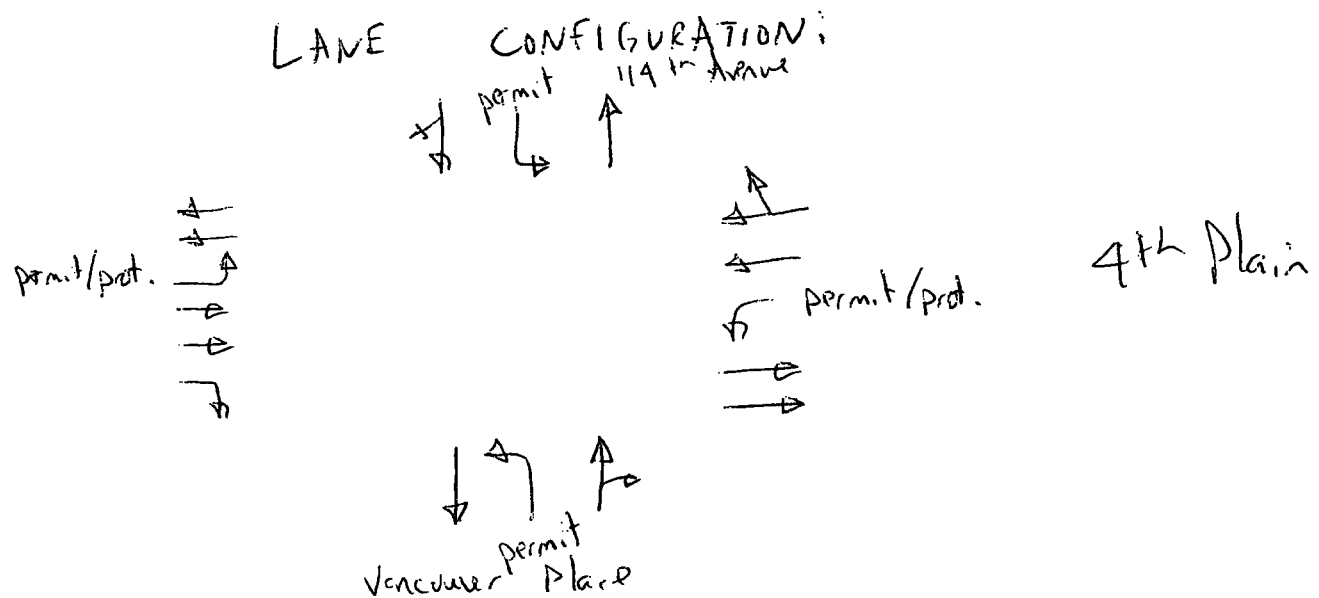 LANE CONFIGURATION:
114th Avenue
permit
permit/prot.
permit/prot.
4th Plain
permit
Vancouver Place